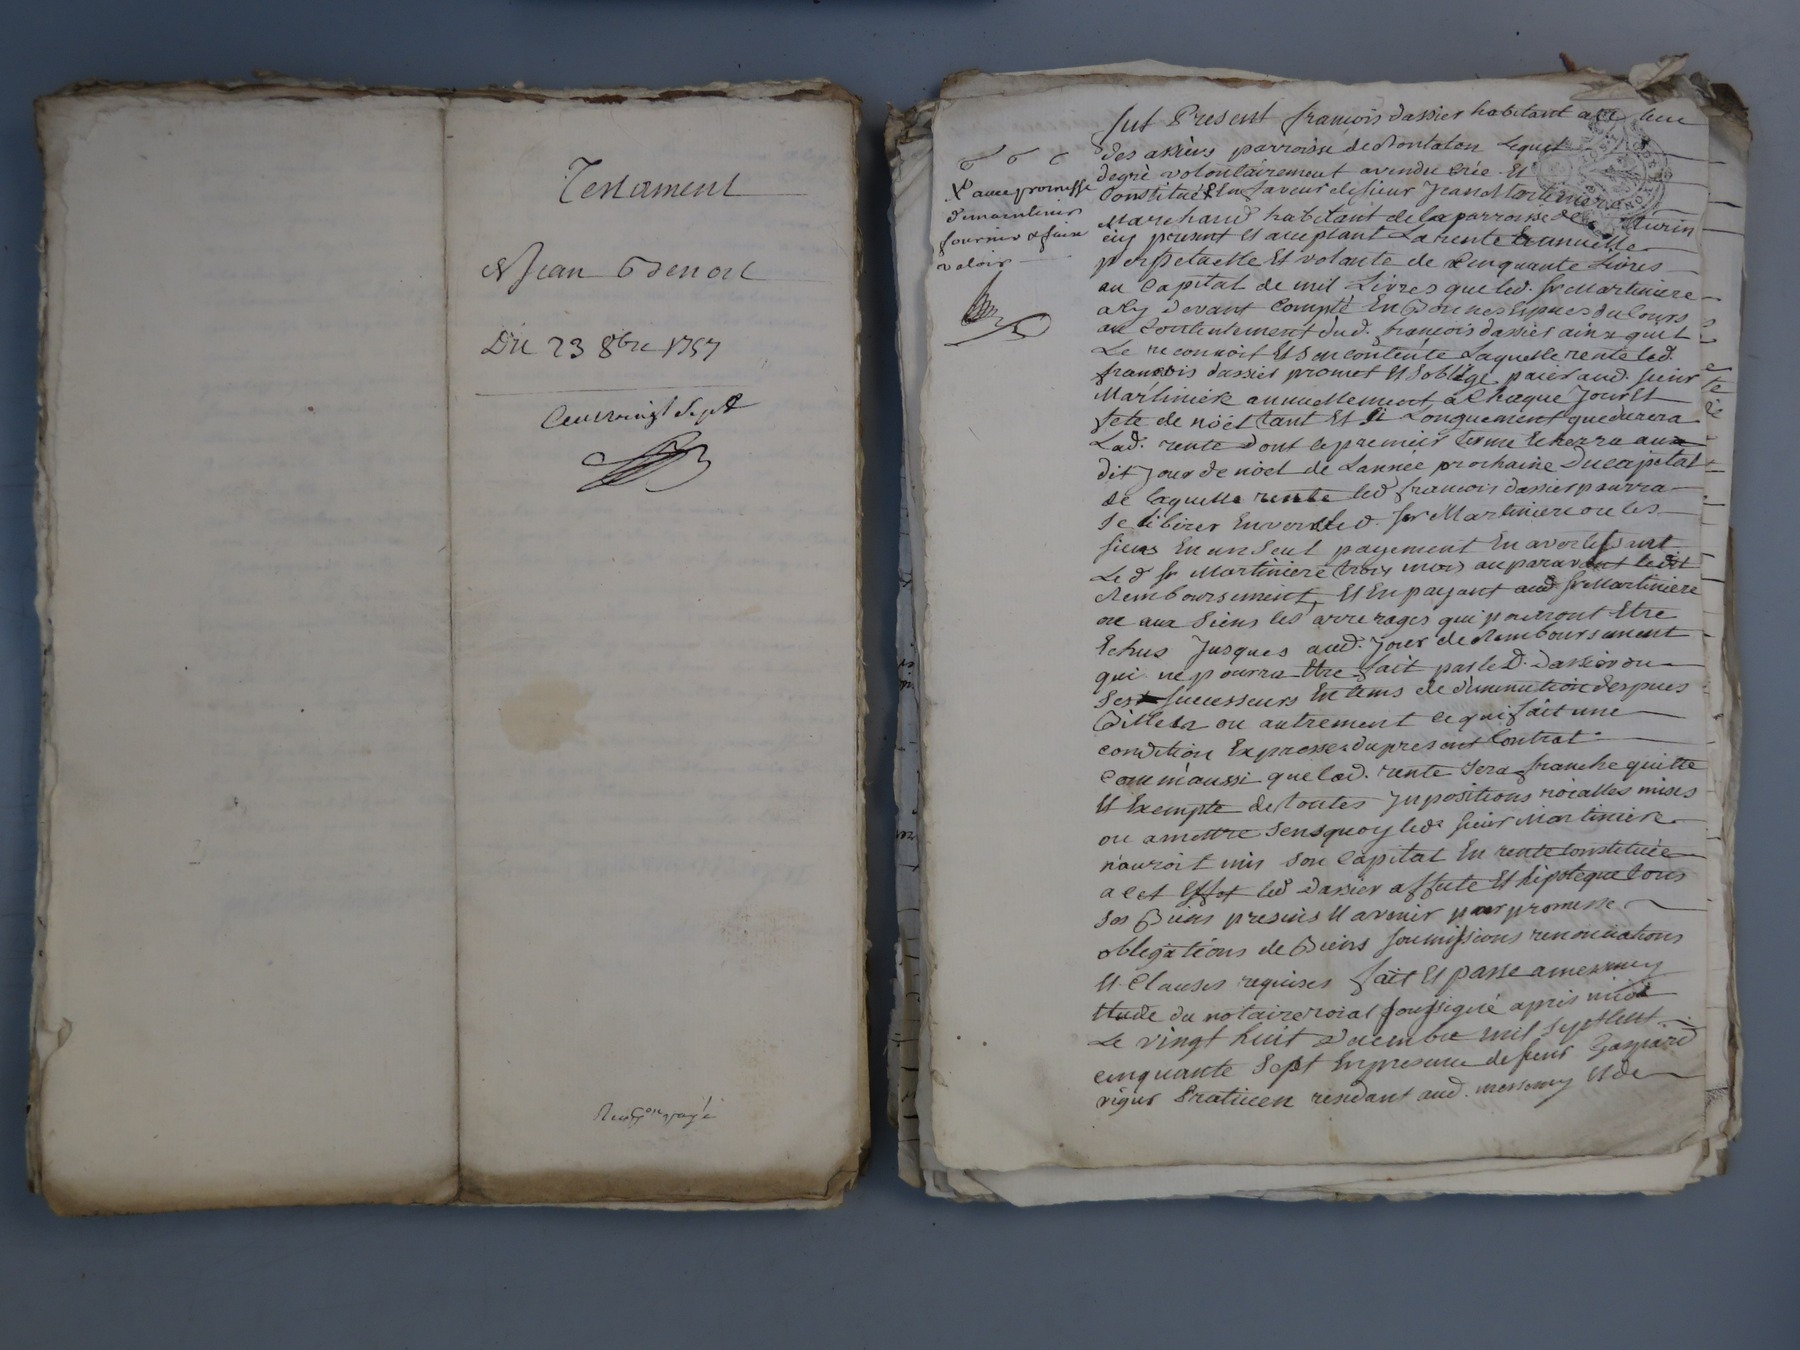 Testament
Jean Benoit
Du 23 8bre 1757
Cent vingt sept
payé
fut Present francois dassier habitant au lieu
des assiers parroisse de Montalon Lequel
de gré volontairement a vendu crée Et
Constitué En faveur de sieur Jean Martiniere
Marchand habitant de la parroisse de
icy present et acceptant La rente annuelle
perpetuelle Et volante de Cinquante Livres
au Capital de mil Livres que led. sr Martiniere
a Cy devant Compté En Bonnes Espuces du Cours
au Contentement dud. francois dassier ainsy quil
Le reconnoit Et s'en contente Laquelle rente led.
francois dassier promet Et soblige paier aud. sieur
Martiniere annuellement a Chaque Jour Et
fete de noël tant Et si Longuement que durera
Lad. rente dont le premier terme Echerra aux
dit Jour de noel de Lannée prochaine Du capital
de laquelle rente led francois dassier pourra
se liberer Envers led. sr Martiniere ou les
siens En un seul payement En avertissant
Le d sr Martiniere trois mois auparavant ledit
Remboursement, Et En payant aud sr Martiniere
ou aux siens les arrerages qui pourront Etre
Echus Jusques aud. Jour de Remboursement
qui ne pourra Etre fait par le d. Dassier ou
ses successeurs En tems de diminution despuces
Billets ou autrement ce qui fait une
condition Expresse du present Contrat
Comm'aussi que lad. rente sera franche quitte
Et Exempte de toutes Inpositions roialles mises
ou a mettre sens quoy led. sieur Martiniere
n'auroit mis son Capital En rente Constituée
a cet Effet led Dassier affecte Et hipoteque tous
ses Biens presens Et avenir par promesse
obligations de Biens soumissions renonciations
Et Clauses requises fait Et passé a messimy
Etude du notaire roial soussigné apres midi
Le vingt huit Decembre mil sept Cent
cinquante sept En presence de sieur Gaspard
Praticien residant aud. messimy Et de
X avec promesse
de maintenir
fournir & faire
valoir